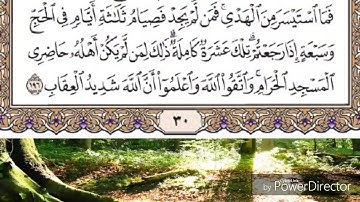 فَمَا ٱسۡتَيۡسَرَ مِنَ ٱلۡهَدۡيِۚ فَمَن لَّمۡ يَجِدۡ فَصِيَامُ ثَلَٰثَةِ أَيَّامٖ فِي ٱلۡحَجِّ
وَسَبۡعَةٍ إِذَا رَجَعۡتُمۡۗ تِلۡكَ عَشَرَةٞ كَامِلَةٞۗ ذَٰلِكَ لِمَن لَّمۡ يَكُنۡ أَهۡلُهُۥ حَاضِرِي
ٱلۡمَسۡجِدِ ٱلۡحَرَامِۚ وَٱتَّقُواْ ٱللَّهَ وَٱعۡلَمُوٓاْ أَنَّ ٱللَّهَ شَدِيدُ ٱلۡعِقَابِ ١٩٦
٣٠
CyberLink
by PowerDirector